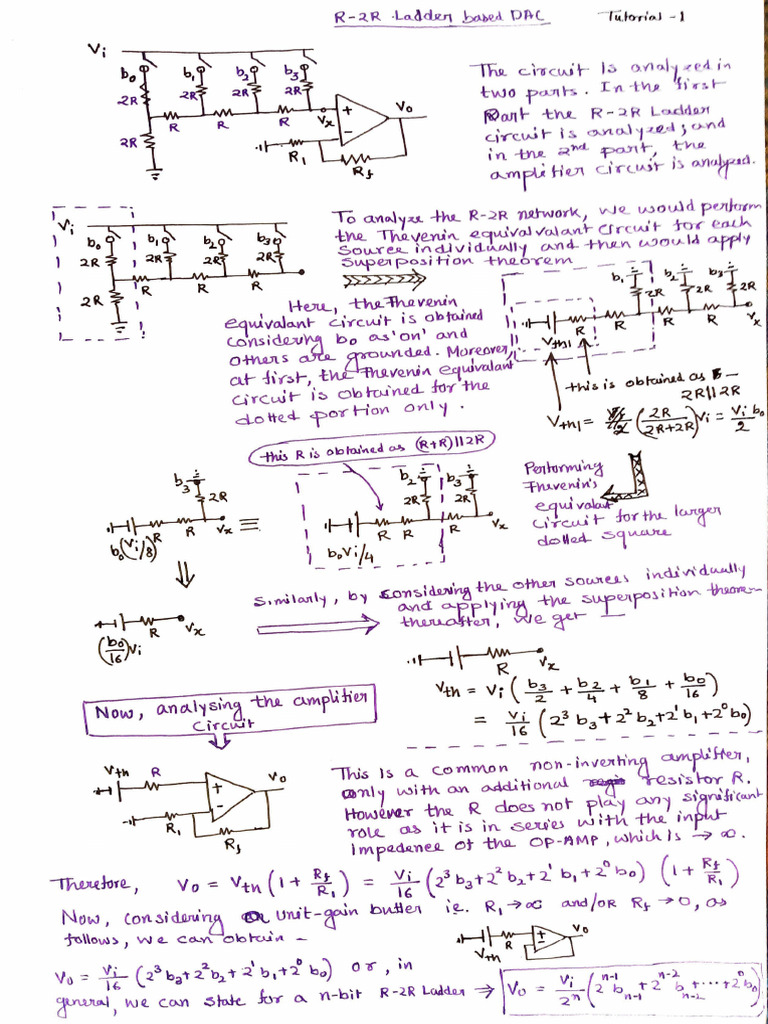 R-2R Ladder based DAC
Tutorial -1
Vi
b0 b1 b2 b3
2R 2R 2R 2R
R R R
2R
Vx
+
-
V0
R1
Rf
The circuit is analyzed in
two parts. In the first
Part the R-2R Ladder
circuit is analyzed; and
in the 2nd part, the
amplifier circuit is analyzed.
To analyze the R-2R network, we would perform
the Thevenin equivalvant circuit for each
source individually and then would apply
superposition theorem
Vi
b0 b1 b2 b3
2R 2R 2R 2R
R R R
2R
Here, the Thevenin
equivalant circuit is obtained
considering b0 as 'on' and
others are grounded. Moreover,
at first, the Thevenin equivalant
circuit is obtained for the
dotted portion only.
b1 b2 b3
2R 2R 2R
R R R R
Vx
Vth1
this is obtained as
2R||2R
Vth1 = (2R/(2R+2R)) Vi = Vi b0/2
this R is obtained as (R+R)||2R
Performing
Thevenin's
equivalant
circuit for the larger
dotted square
b2 b3
2R 2R
R R R
Vx
b0 Vi/4
≡
b3
2R
R R
Vx
b0(Vi/8)
R
Vx
(b0/16)Vi
Similarly, by considering the other sources individually
and applying the superposition theorem
thereafter, we get —
R
Vx
Vth = Vi (b3/2 + b2/4 + b1/8 + b0/16)
= Vi/16 (2³b3+2²b2+2¹b1+2⁰b0)
Now, analysing the amplifier
circuit
Vth
R
+
-
V0
R1
Rf
This is a common non-inverting amplifier,
only with an additional resistor R.
However the R does not play any significant
role as it is in series with the input
impedence of the OP-AMP, which is → ∞.
Therefore, V0 = Vth (1 + Rf/R1) = Vi/16 (2³b3+2²b2+2¹b1+2⁰b0) (1 + Rf/R1)
Now, considering unit-gain buffer i.e. R1→∞ and/or Rf→0, as
follows, we can obtain —
Vth
R
+
-
V0
V0 = Vi/16 (2³b3+2²b2+2¹b1+2⁰b0) or, in
general, we can state for a n-bit R-2R Ladder ⇒ V0 = Vi/2ⁿ (2ⁿ⁻¹bn-1 + 2ⁿ⁻²bn-2 + ... + 2⁰b0)